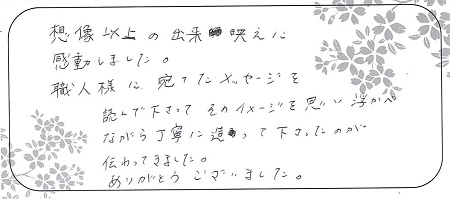 想像以上の出来映えに
感動しました。
職人様に宛てたメッセージを
読んで下さって そのイメージを思い浮かべ
ながら丁寧に造って下さったのが
伝わってきました。
ありがとうございました。